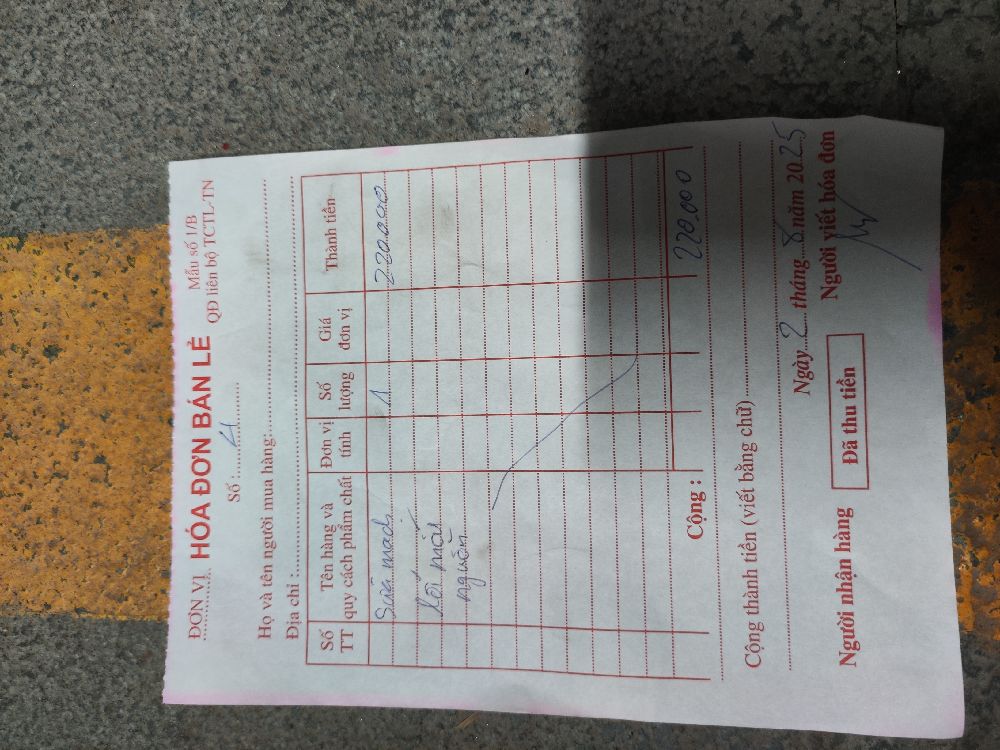 ĐƠN VỊ HÓA ĐƠN BÁN LẺ Mẫu số 1/B
Số : 4 QĐ liên bộ TCTL-TN
Họ và tên người mua hàng:
Địa chỉ :
Số TT Tên hàng và quy cách phẩm chất Đơn vị tính Số lượng Giá đơn vị Thành tiền
Sửa mạch 1 220.000
lỗi mất
nguồn
Cộng : 220.000
Cộng thành tiền (viết bằng chữ)
Ngày 2 tháng 8 năm 2025
Người nhận hàng Đã thu tiền Người viết hóa đơn